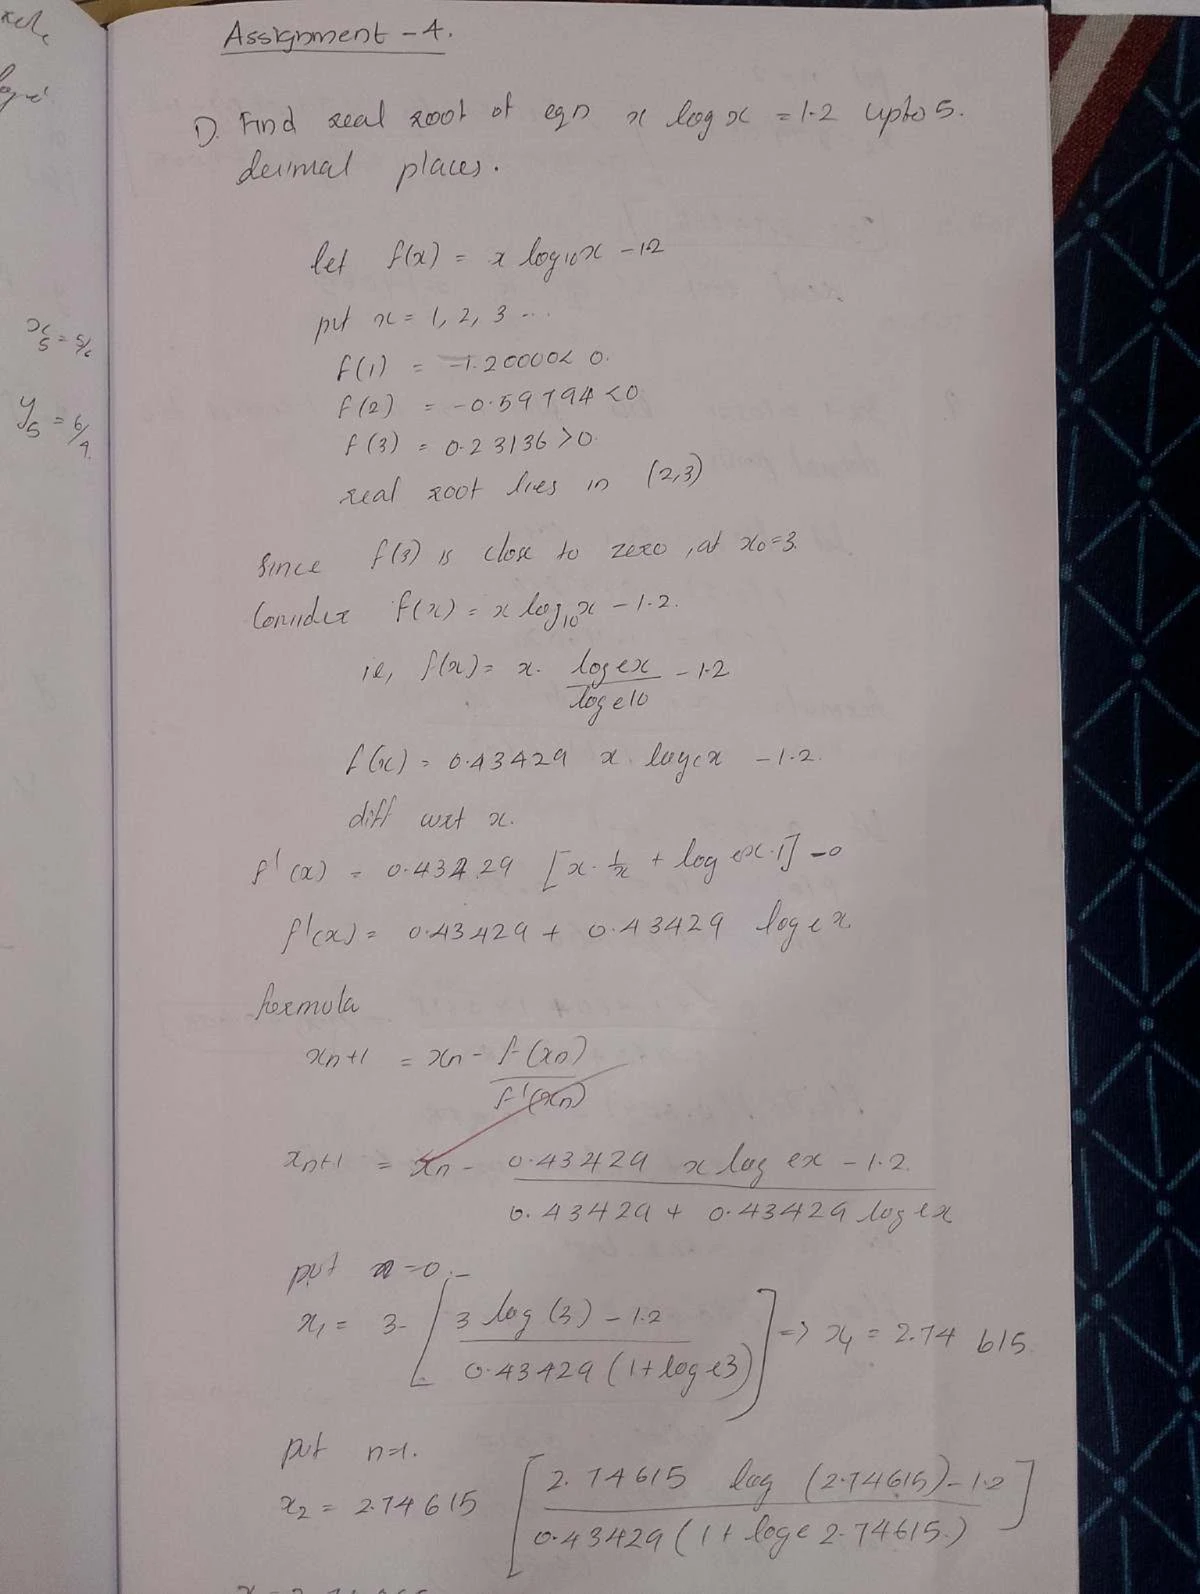 Assignment - 4.
1). Find real root of eqn x log x = 1.2 upto 5.
decimal places.
let f(x) = x log10x - 1.2
put x = 1, 2, 3 ...
f(1) = -1.20000 < 0.
f(2) = -0.59794 < 0
f(3) = 0.23136 > 0.
real root lies in (2,3)
x5 = 5/
y5 = 6/4
Since f(3) is close to zero, at x0=3.
Consider f(x) = x log10x - 1.2.
ie, f(x) = x. logex / loge10 - 1.2
f(x) = 0.43429 x. logex - 1.2.
diff wrt x.
f'(x) = 0.43429 [x. 1/x + log ex.1] - 0
f'(x) = 0.43429 + 0.43429 logex.
formula
xn+1 = xn - f(xn) / f'(xn)
xn+1 = xn - 0.43429 x log ex - 1.2. / 0.43429 + 0.43429 logex
put n=0.
x1 = 3- [3 log (3) - 1.2 / 0.43429 (1+loge3)] => x1 = 2.74 615.
put n=1.
x2 = 2.74615 [2.74615 log (2.74615) - 1.2 / 0.43429 (1 + loge 2.74615.)]